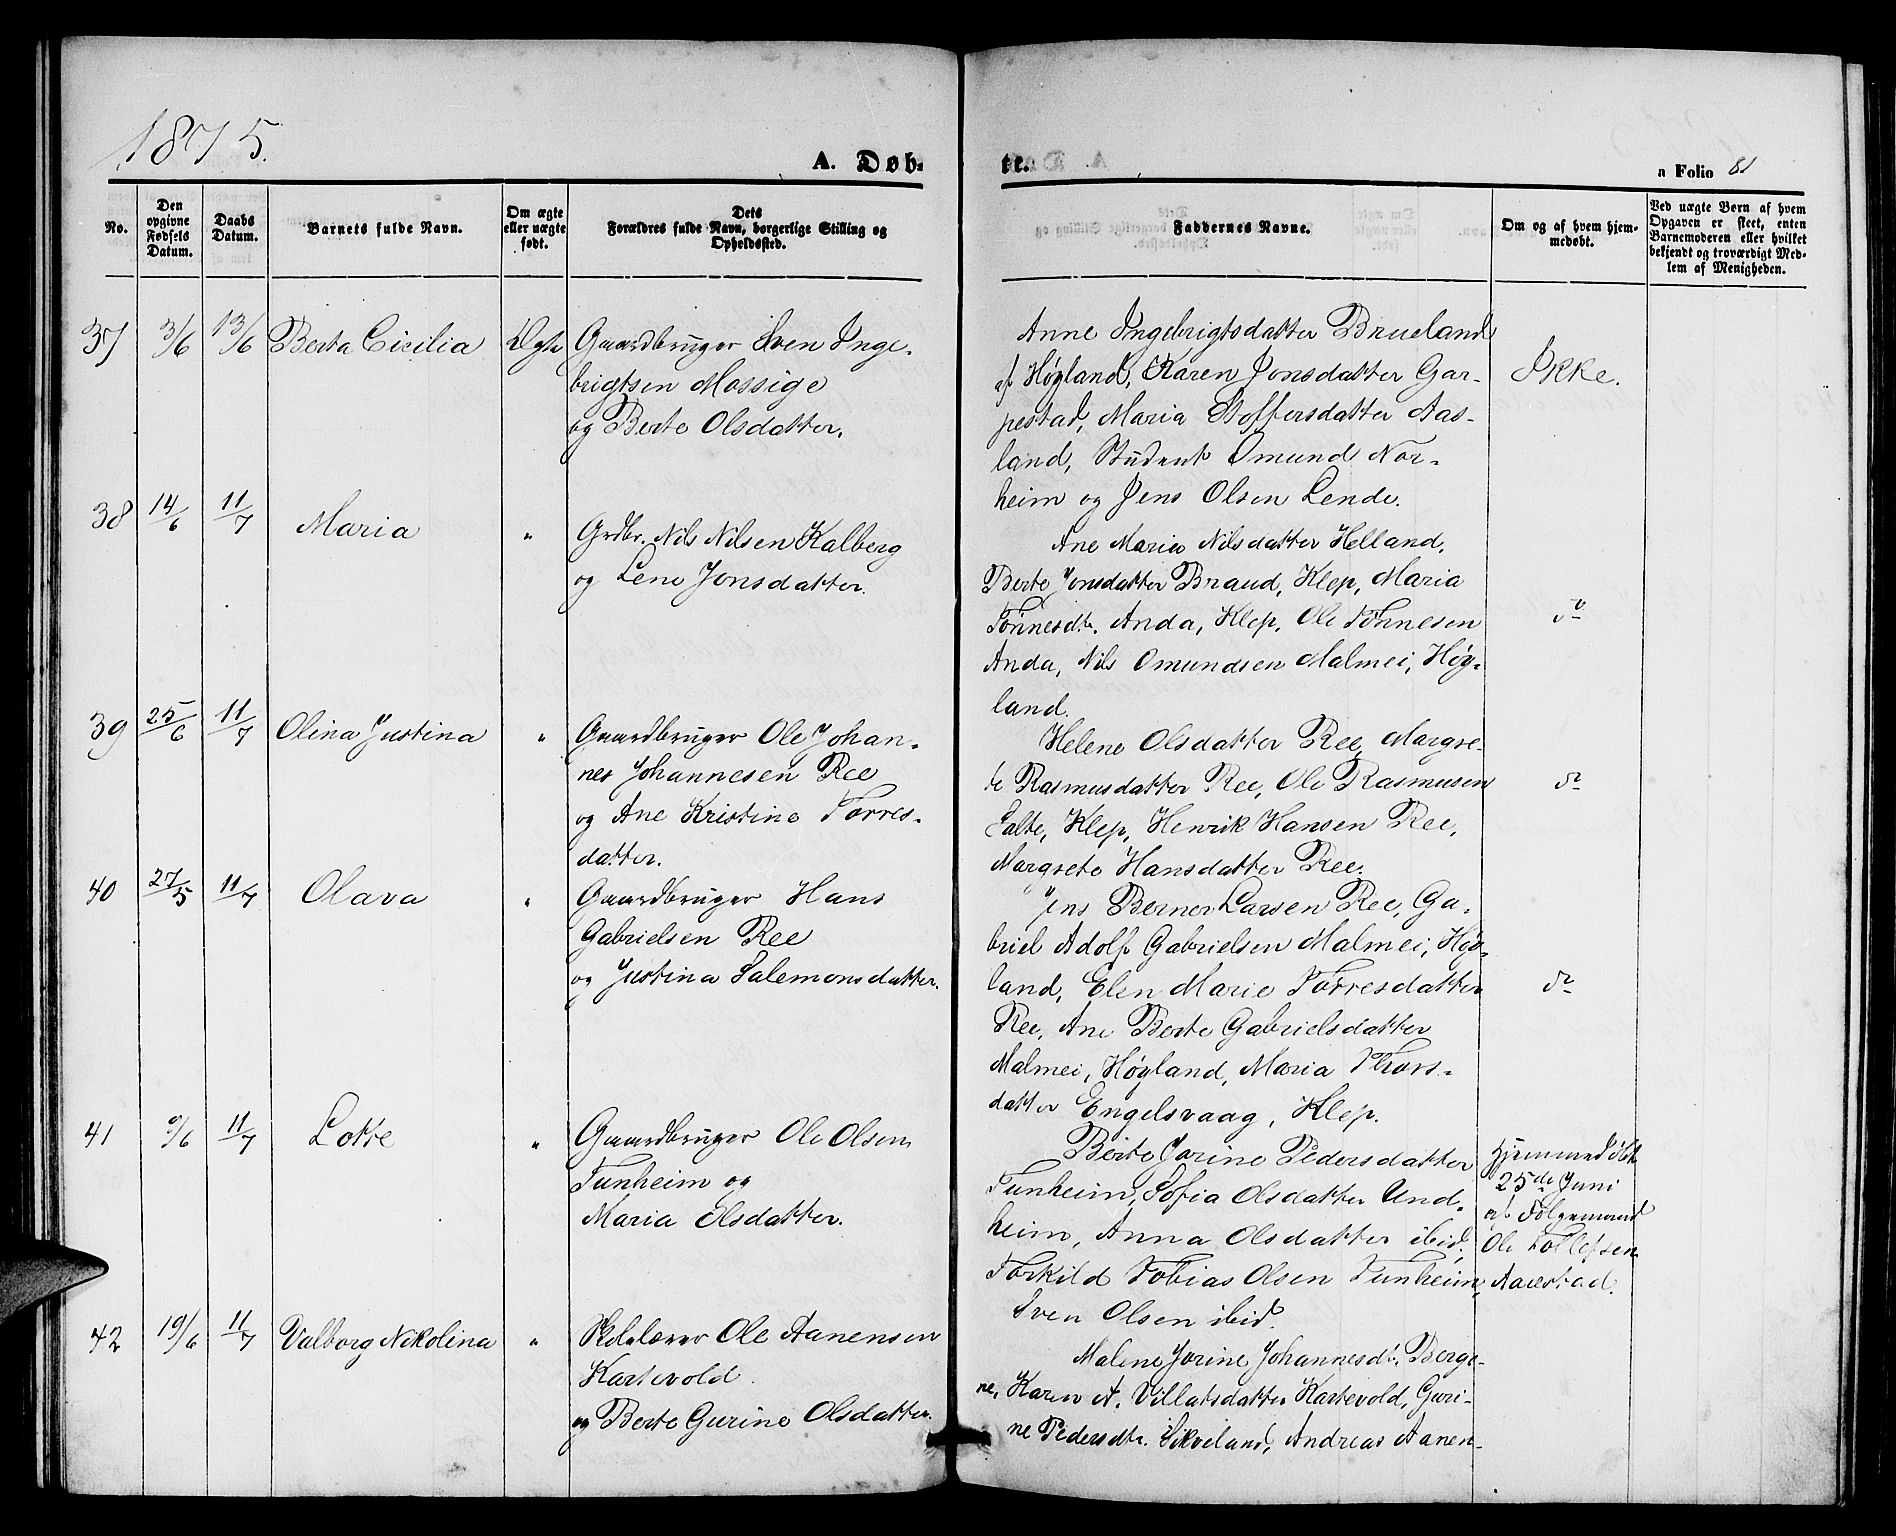 1875.
A. Døb-
te.
a Folio 81
No.
Den opgivne Fødsels Datum.
Daabs Datum.
Barnets fulde Navn.
Om ægte eller uægte født.
Dets Forældres fulde Navn, borgerlige Stilling og Opholdssted.
Faddernes Navne.
Om og af hvem hjemmedøbt.
Ved uægte Børn af hvem Opgaven er skeet, enten Barnemoderen eller hvilket bekjendt og troværdigt Medlem af Menigheden.
37 3/6 13/6 Berta Cicilia Ægte Gaardbruger Sven Inge-
brigtsen Mossige
og Berte Olsdatter.
Anne Ingebrigtsdatter Brueland
af Høgland, Karen Jonsdatter Gar-
pestad, Maria Stoffersdatter Aas-
land, Student Omund Nor-
heim og Jens Olsen Lende.
Ikke.
38 14/6 11/7 Maria " Grdbr. Nils Nilsen Kalberg
og Lene Jonsdatter.
Ane Maria Nilsdatter Helland,
Berte Jonsdatter Braud, Klep, Maria
Tønnesdtr. Anda, Klep, Ole Tønnesen
Anda, Nils Omundsen Malmei, Høg-
land.
do
39 25/6 11/7 Olina Justina " Gaardbruger Ole Johan-
nes Johannesen Ree
og Ane Kristine Torres-
datter.
Helene Olsdatter Ree, Margre-
te Rasmusdatter Ree, Ole Rasmusen
Salte, Klep, Henrik Hansen Ree,
Margrete Hansdatter Ree.
do
40 27/5 11/7 Olava " Gaardbruger Hans
Gabrielsen Ree
og Justina Salemonsdatter.
Jens Berner Larsen Ree, Ga-
briel Adolf Gabrielsen Malmei, Høg-
land, Elen Marie Torresdatter
Ree, Ane Berte Gabrielsdatter
Malmei, Høgland, Maria Thors-
datter Engelsvaag, Klep.
do
41 9/6 11/7 Lotte " Gaardbruger Ole Olsen
Tunheim og
Maria Elsdatter.
Berte Jorine Pedersdatter
Tunheim, Sofia Olsdatter Und-
heim, Anna Olsdatter ibid,
Torkild Tobias Olsen Tunheim,
Sven Olsen ibid.
Hjemmedøbt
25de Juni
af Følgemand
Ole Tollefsen
Aarestad.
42 19/6 11/7 Valborg Nikolina " Skolelærer Ole Aanensen
Kartevold
og Berte Gurine Olsdatter.
Malene Jorine Johannesdtr. Berge-
ne, Karen A. Villatsdatter Kartevold, Guri-
ne Pedersdtr. Sikveland, Andreas Aanen-